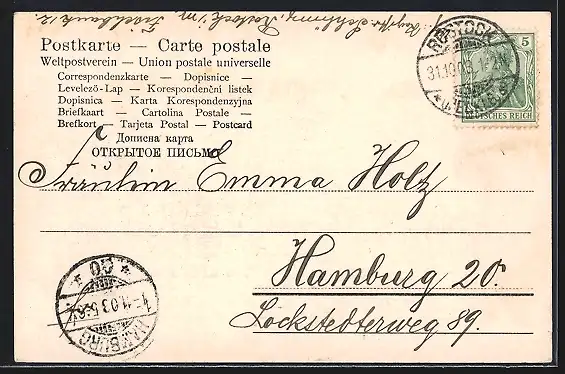 Postkarte — Carte postale
Weltpostverein — Union postale universelle
Correspondenzkarte — Dopisnice —
Levelező-Lap — Korespondenční listek
Dopisnica — Karta Korespondenzyjna
Briefkaart — Cartolina Postale —
Brefkort — Tarjeta Postal — Postcard
Дописна карта
ОТКРЫТОЕ ПИСЬМО
ROSTOCK
31.10.03. 1-2N.
5
DEUTSCHES REICH
Fräulein Emma Holz
Hamburg 20.
Lockstedterweg 89.
HAMBURG